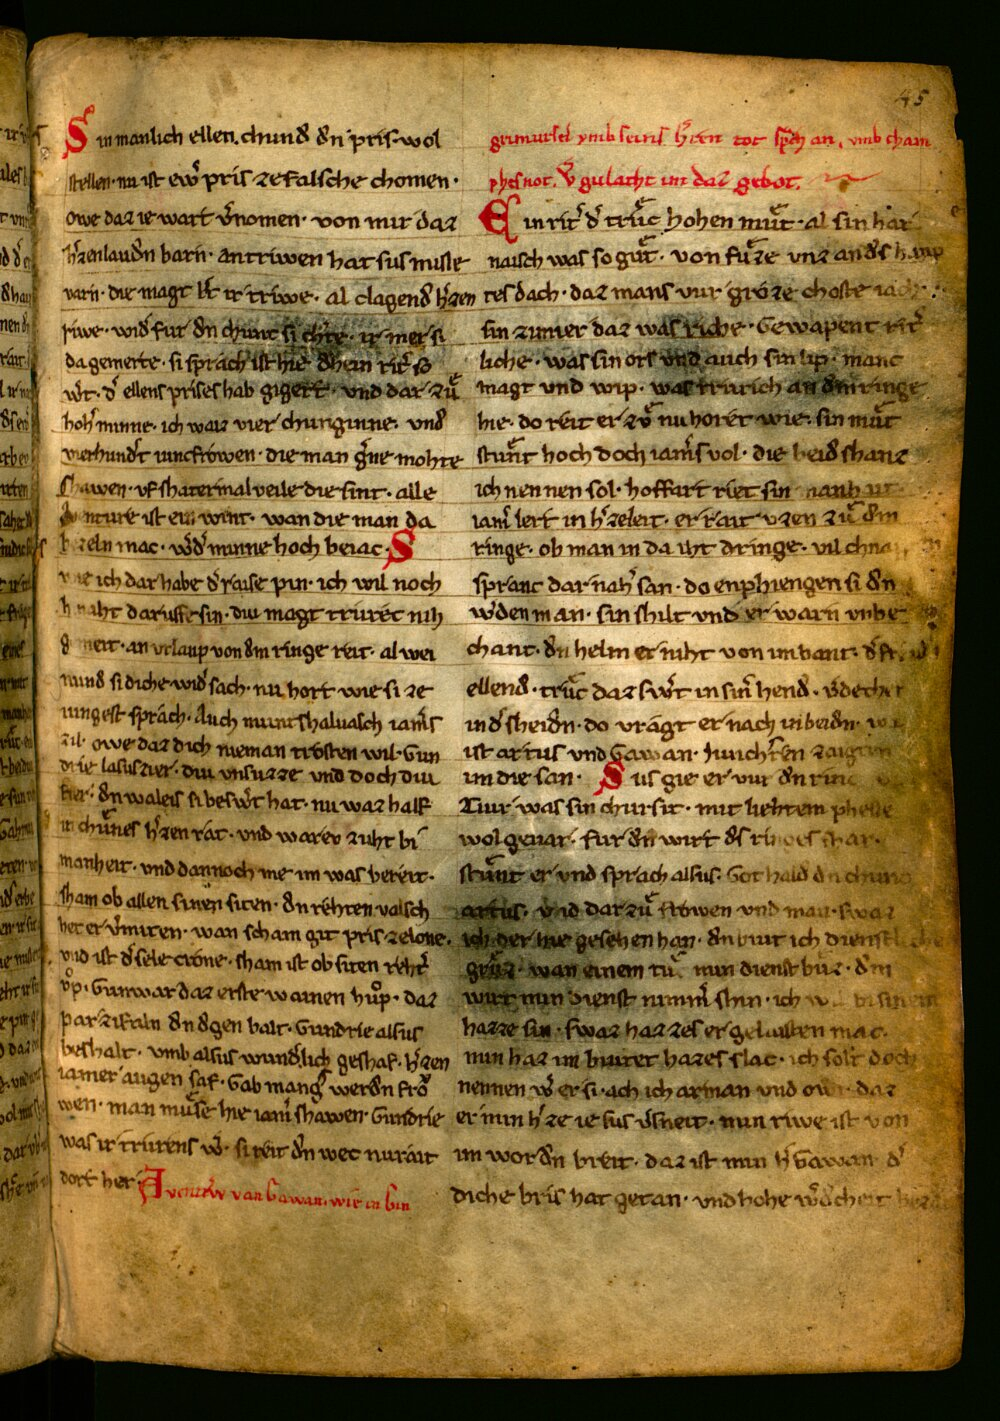 45
Sin manlich ellen. chund dn pris wol
stellen · nu ist ew̄ pris zefalsche chomen ·
owe daz ie wart v̄nomen · von mir daz
h̄zenlaudn barn · an triwen hat sus misse
varn · die magt let ir triwe · al clagend h̄zen
riwe · wid fur dn chunc si cherte · ir mer si
da gemerte · si sprach ist hie dhein rit̄ so
w̄t · d ellens prises hab gigert · vnd dar zuͦ
hoh̄ minne · ich waiz vier chunginne · vnd
vierhundt iuncfrowen · die man ḡne mohte
shawen · vf shatermalveile die sint · alle
ist ein wint · wan die man da
mac · wd minne hoch beiac · S
ich dar habe d raise pin · ich wil noch
naht darvffe sin · diu magt truret nih
an vrlaup von dm ringe reit · al wei
nund si diche wid sach · nu hort wie si ze
iungest sprach · Auch muntshaluasch iam̄s
zil · owe daz dich nieman trosten wil · Gun
drie lasurzier · diu vnsuzze vnd doch diu
fier · dn waleis si besw̄t hat · nu waz half
in chunes h̄zen rat · vnd warev zuht bi
manheit · vnd dannoch me im was bereit ·
sham ob allen sinen siten · dn rehten valsch
het er v̄miten · wan scham git pris zelone ·
vnd ist d sele crone · sham ist ob siten reht̄
vͦp · Gunwar daz erste wainen huͦp · daz
parzifaln dn dgen balt · Gundrie alsus
beshalt · vmb alsus wundlich geshaf · h̄zen
iamer augen saf · Gab manḡ werdn froͮ
wen · man muͦse hie iam̄ shawen · Gundrie
was ir trurens w̄ · si reit dn wec nu rait
dort her Aventew̄ van Gawan · wie in kin
grimursel vmb seins h̄ren tot sp̄ch an · vmb cham
phes not · v̄ gulacht im daz gebot ·
Ein rit̄ d truͦc hohen muͦt · al sin har
naisch was so guͦt · von fuͦze vnz an ds haup
tes dach · daz mans vur groze choste iach ·
sin zimier daz was riche · Gewapent rit̄
liche · was sin ors vnd auch sin lip · manc
magt vnd wip · was trurich an dm ringe
hie · do reit er zuͦ nu horet wie · sin muͦt
stuͦnt hoch doch iam̄s vol · die beid shanz
ich nennen sol · hoffart riet sin manheit
iam̄ lert in h̄zeleit · er rait vzen zuͦ dm
ringe · ob man in da iht dringe · vil
spranc dar nah̄ san · do enphiengen si dn
wden man · sin shilt vnd er warn vnbe
chant · dn helm er niht von im bant ·
ellend · truͦc daz sw̄t in sin̄ hend · v̄dechet
in d sheidn · do vragt er nach in beidn ·
ist artus vnd Gawan · iunch̄ren zaigten
im die san · Sus gie er vur dn rinc
Tiur was sin chursit · mit liehtem phelle
wol gevar · fur dn wirt ds ringes shar ·
stuͦnt er vnd sprach alsus · Got hald dn chunc
artus · vnd dar zuͦ frowen vnd man · swaz
ich der hie gesehen han · dn biut ich dienstliche
gruͦz · wan einem tuͦ min dienst buͦz · dm
wirt min dienst nimm̄ shin · ich
hazze sin · swaz hazzes er gelaisten mac ·
min haz im biutet hazes slac · ich solt doch
nennen w̄ er si · ach ich arman vnd owe · daz
er min h̄ze ie sus v̄sneit · min riwe ist von
im wordn breit · daz ist min h̄ Gawan d
diche bris hat getan · vnd hohe w̄dcheit